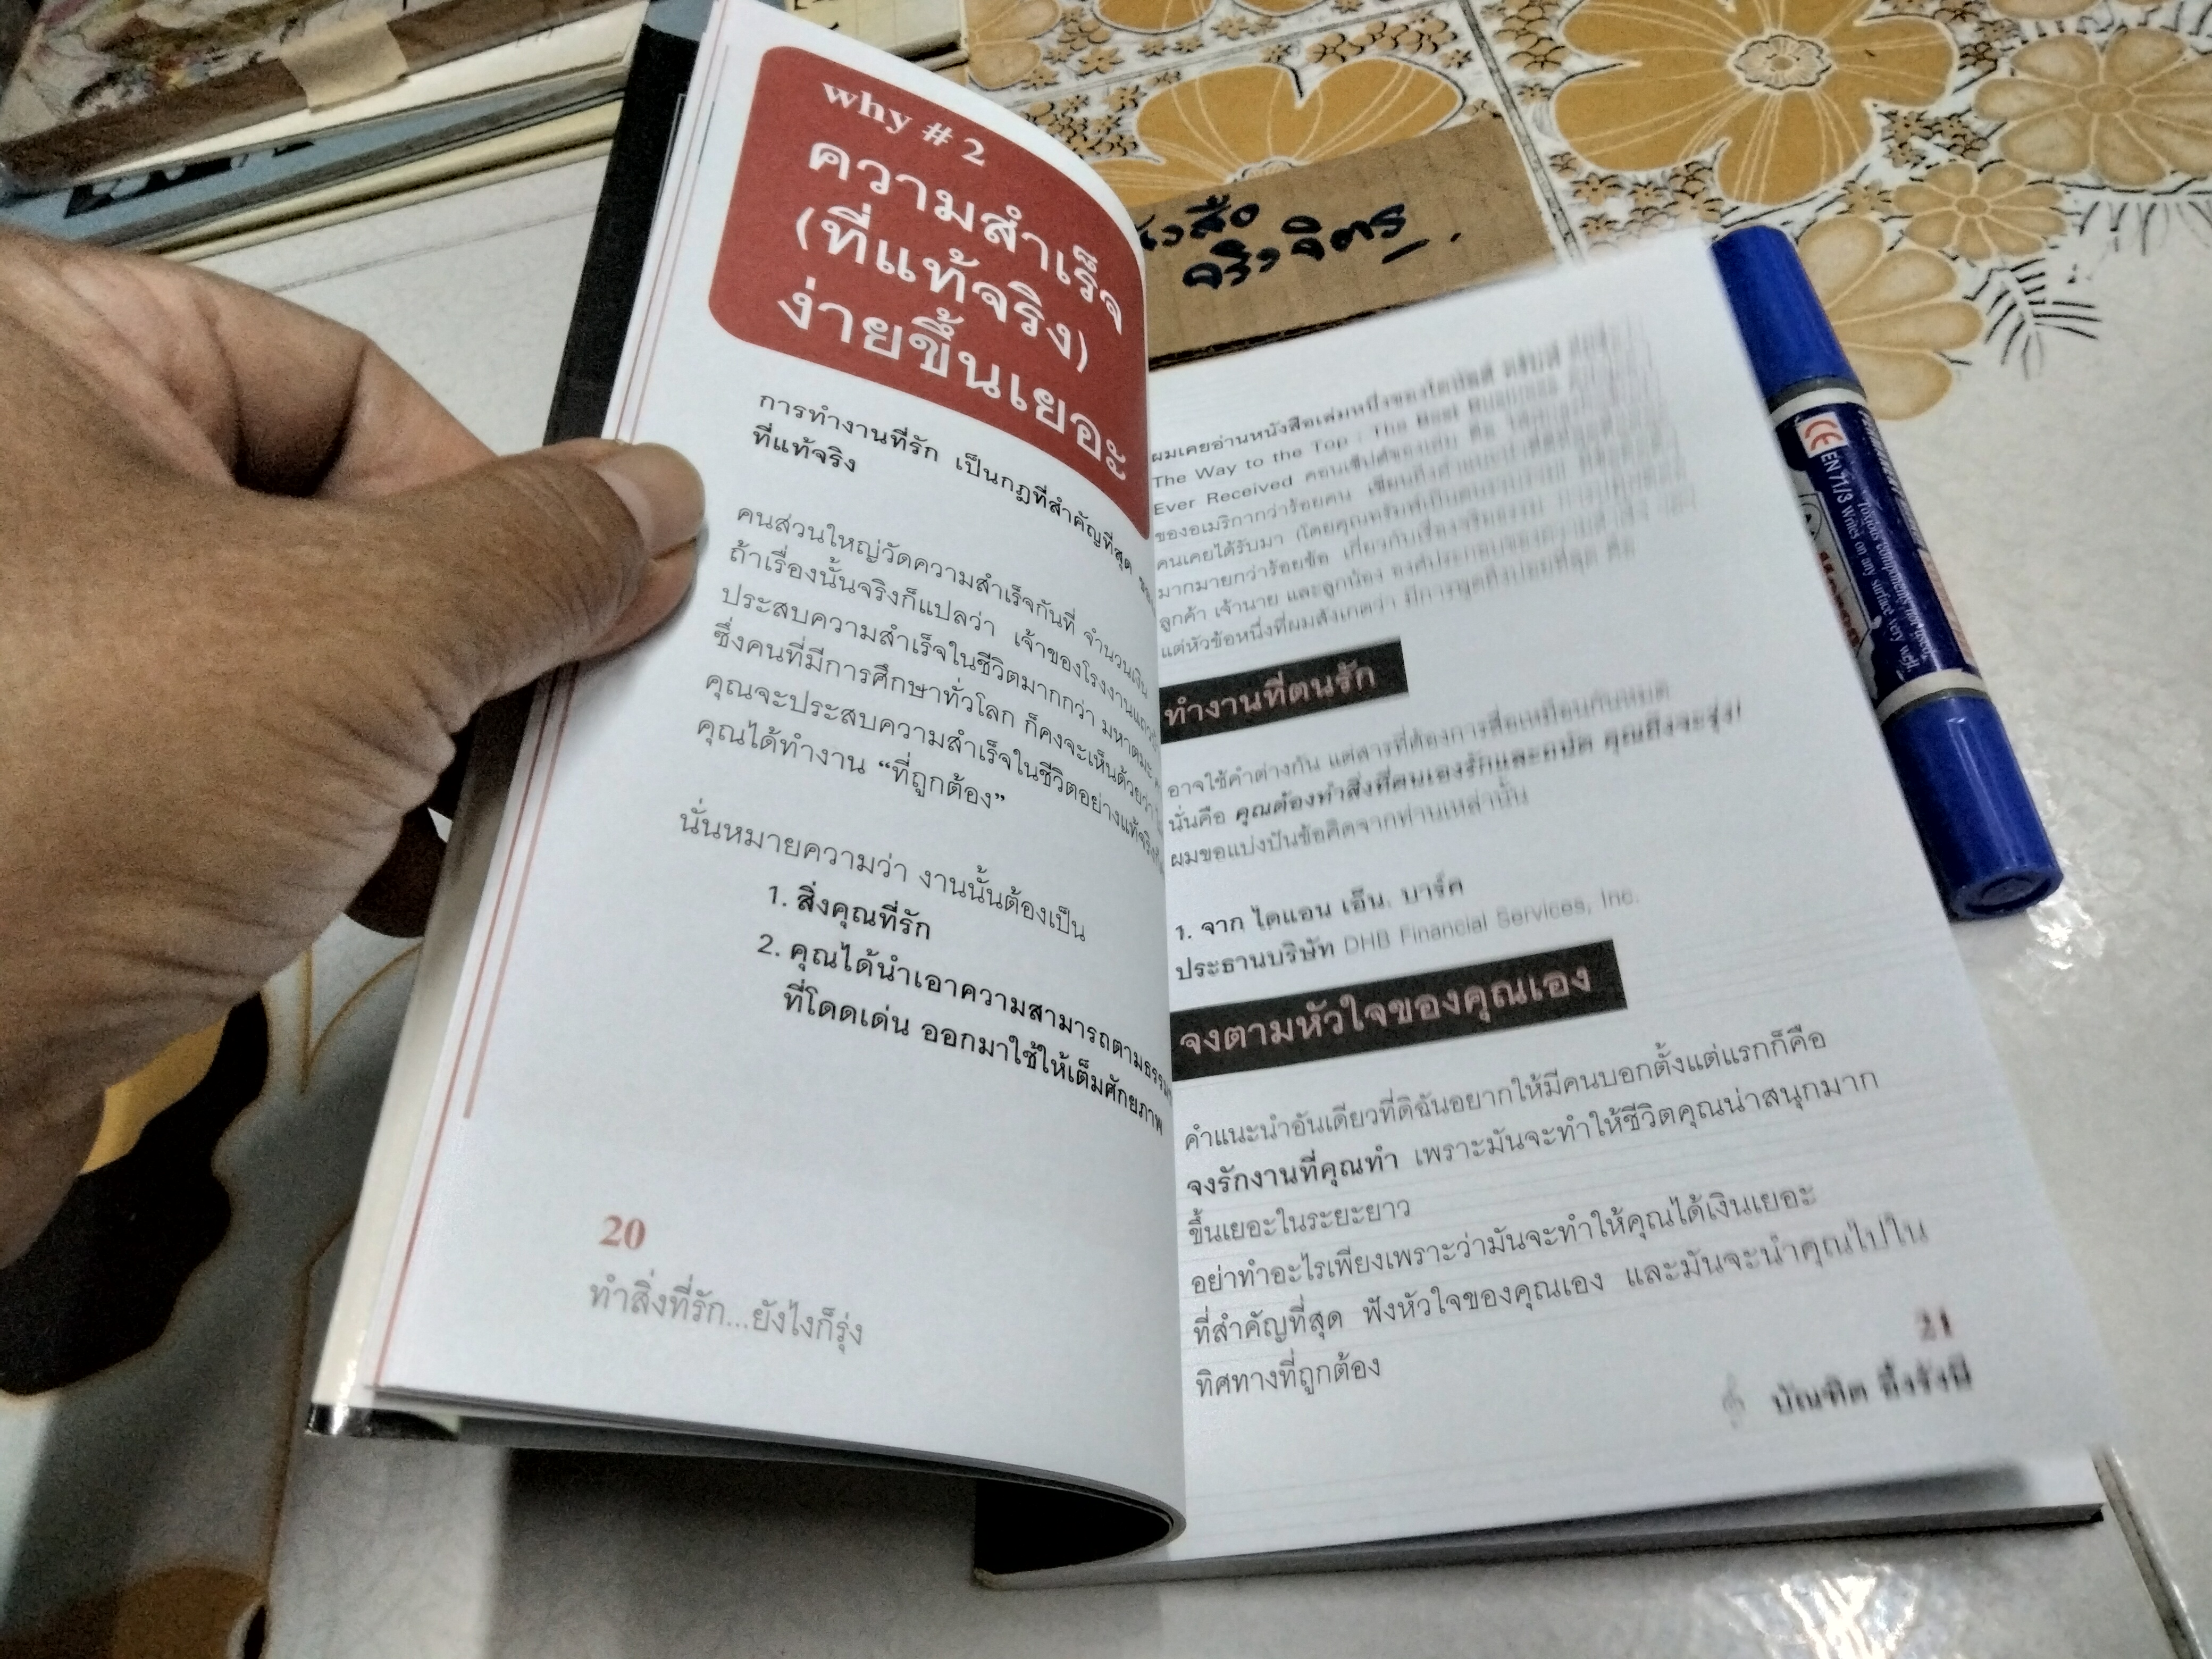 why # 2
ความสำเร็จ
(ที่แท้จริง)
ง่ายขึ้นเยอะ
การทำงานที่รัก เป็นกฎที่สำคัญที่สุด
ที่แท้จริง
คนส่วนใหญ่วัดความสำเร็จกันที่ จำนวนเงิน
ถ้าเรื่องนั้นจริงก็แปลว่า เจ้าของโรงงานแถว
ประสบความสำเร็จในชีวิตมากกว่า มหาตมะ
ซึ่งคนที่มีการศึกษาทั่วโลก ก็คงจะเห็นด้วยว่า
คุณจะประสบความสำเร็จในชีวิตอย่างแท้จริง
คุณได้ทำงาน “ที่ถูกต้อง”
นั่นหมายความว่า งานนั้นต้องเป็น
1. สิ่งคุณที่รัก
2. คุณได้นำเอาความสามารถตามธรรม
ที่โดดเด่น ออกมาใช้ให้เต็มศักยภาพ
20
ทำสิ่งที่รัก...ยังไงก็รุ่ง
ผมเคยอ่านหนังสือเล่มหนึ่งของโดนัลด์ ทรัมป์
The Way to the Top : The Best Business
Ever Received คอนเซ็ปต์ของเล่ม คือ
ของอเมริกากว่าร้อยคน เขียนถึงคำแนะนำ
คนเคยได้รับมา (โดยคุณทรัมป์เป็นคนรวบรวม)
มากมายกว่าร้อยข้อ เกี่ยวกับเรื่องจริยธรรม
ลูกค้า เจ้านาย และลูกน้อง องค์ประกอบของความสำเร็จ
แต่หัวข้อหนึ่งที่ผมสังเกตว่า มีการพูดถึงบ่อยที่สุด คือ
ทำงานที่ตนรัก
อาจใช้คำต่างกัน แต่สารที่ต้องการสื่อเหมือนกันหมด
นั่นคือ คุณต้องทำสิ่งที่ตนเองรักและถนัด คุณถึงจะรุ่ง!
ผมขอแบ่งปันข้อคิดจากท่านเหล่านั้น
1. จาก ไดแอน เอ็น. บาร์ค
ประธานบริษัท DHB Financial Services, Inc.
จงตามหัวใจของคุณเอง
คำแนะนำอันเดียวที่ดิฉันอยากให้มีคนบอกตั้งแต่แรกก็คือ
จงรักงานที่คุณทำ เพราะมันจะทำให้ชีวิตคุณน่าสนุกมาก
ขึ้นเยอะในระยะยาว
อย่าทำอะไรเพียงเพราะว่ามันจะทำให้คุณได้เงินเยอะ
ที่สำคัญที่สุด ฟังหัวใจของคุณเอง และมันจะนำคุณไปใน
ทิศทางที่ถูกต้อง
21
บัณฑิต อึ้งรังษี
จริงจิตร
CE EN 71/3 Writes on any surface very well.